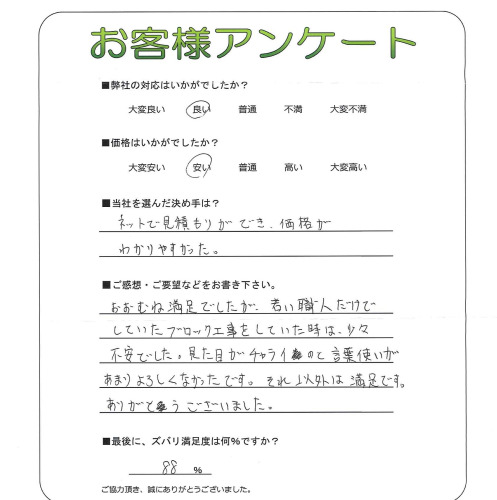 お客様アンケート
■弊社の対応はいかがでしたか？
大変良い 良い 普通 不満 大変不満
■価格はいかがでしたか？
大変安い 安い 普通 高い 大変高い
■当社を選んだ決め手は？
ネットで見積もりができ、価格が
わかりやすかった。
■ご感想・ご要望などをお書き下さい。
おおむね満足でしたが、若い職人だけで
していたブロック工事をしていた時は、少々
不安でした。見た目がチャライのと言葉使いが
あまりよろしくなかったです。それ以外は満足です。
ありがとうございました。
■最後に、ズバリ満足度は何%ですか？
88 %
ご協力頂き、誠にありがとうございました。